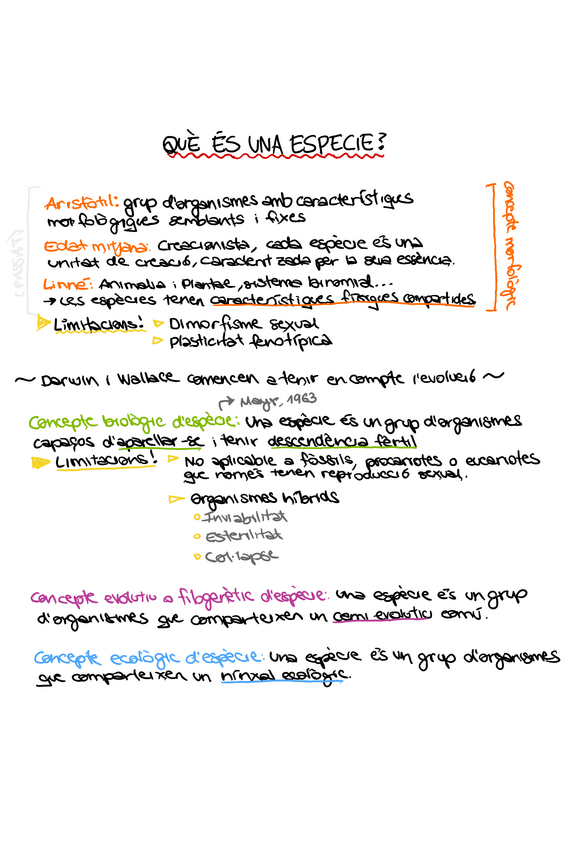 QUÈ ÉS UNA ESPECIE?
(PASSAT)
Aristòtil: grup d'organismes amb característiques
morfològiques semblants i fixes
Edat mitjana: Creacionista, cada espècie és una
unitat de creació, caracteritzada per la seua essència.
Linné: Animalia i Plantae, sistema binomial...
→ Les espècies tenen característiques físiques compartides
concepte morfològic
Limitacions! ▷ Dimorfisme sexual
▷ plasticitat fenotípica
~ Darwin i Wallace comencen a tenir en compte l'evolució ~
→ Mayr, 1963
Concepte biològic d'espècie: una espècie és un grup d'organismes
capaços d'aparellar-se i tenir descendència fèrtil
Limitacions! ▷ No aplicable a fòssils, procariotes o eucariotes
que només tenen reproducció sexual.
▷ organismes híbrids
Inviabilitat
Esterilitat
Col·lapse
Concepte evolutiu o filogenètic d'espècie: una espècie és un grup
d'organismes que comparteixen un camí evolutiu comú.
Concepte ecològic d'espècie: una espècie és un grup d'organismes
que comparteixen un nínxol ecològic.